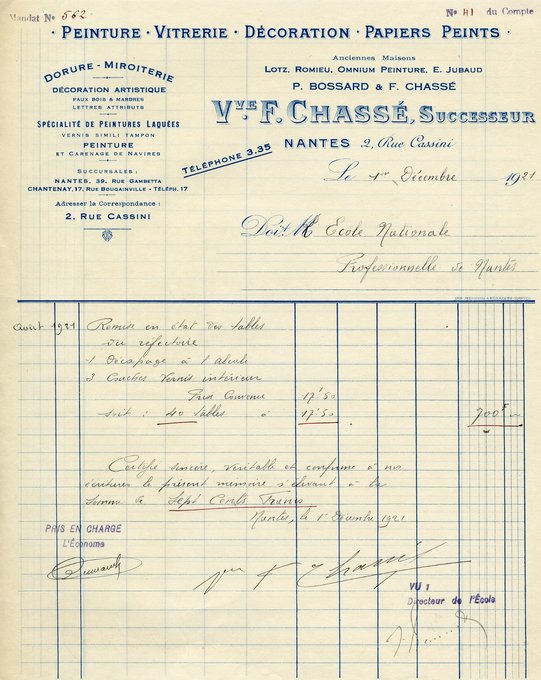 Mandat No 562
No 41 du Compte
· PEINTURE · VITRERIE · DÉCORATION · PAPIERS PEINTS ·
DORURE - MIROITERIE
DÉCORATION ARTISTIQUE
FAUX BOIS & MARBRES
LETTRES ATTRIBUTS
SPÉCIALITÉ DE PEINTURES LAQUÉES
VERNIS SIMILI TAMPON
PEINTURE
ET CARENAGE DE NAVIRES
SUCCURSALES :
NANTES, 39, RUE GAMBETTA
CHANTENAY, 17, RUE BOUGAINVILLE - TÉLÉPH. 17
Adresser la Correspondance :
2, RUE CASSINI
Anciennes Maisons
LOTZ, ROMIEU, OMNIUM PEINTURE, E. JUBAUD
P. BOSSARD & F. CHASSÉ
VVE F. CHASSÉ, SUCCESSEUR
TÉLÉPHONE 3.35
NANTES 2, Rue Cassini
Le 1er Décembre 1921
Doit M École Nationale
Professionnelle de Nantes
Août 1921 Remise en état des tables
du réfectoire
1 Décapage à l'alcali
3 Couches Vernis intérieur
Prix Convenu 17f50
soit : 40 tables à 17f50 700f
Certifié sincère, véritable et conforme à nos
écritures le présent mémoire s'élevant à la
somme de Sept Cents Francs
Nantes, le 1er Décembre 1921
PRIS EN CHARGE
L'Économe
pour F Chassé
VU :
Directeur de l'École